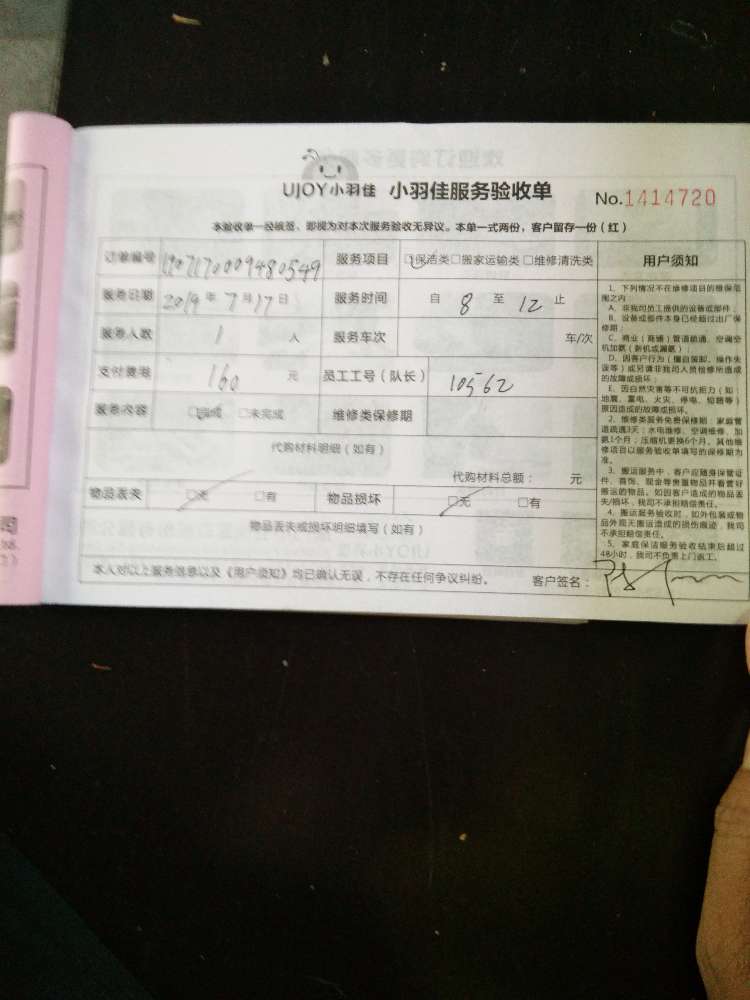 UJOY小羽佳 小羽佳服务验收单 No.1414720
本验收单一经缄签、即视为对本次服务验收无异议。本单一式两份，客户留存一份（红）
订单编号 服务项目 □保洁类□搬家运输类□维修清洗类 用户须知
服务日期 2019年7月17日 服务时间 自 8 至 12 止
服务人数 1 人 服务车次 车/次
支付费用 160 元 员工工号（队长） 10562
服务内容 □完成 □未完成 维修类保修期
代购材料明细（如有）
代购材料总额： 元
物品丢失 □无 □有 物品损坏 □无 □有
物品丢失或损坏明细填写（如有）
本人对以上服务信息以及《用户须知》均已确认无误，不存在任何争议纠纷。 客户签名：
1、下列情况不在维修项目的维保范
围之内
A、非我司员工提供的设备或部件；
B、设备或部件本身已经超过出厂保
修期；
C、商业（商铺）管道疏通、空调空
机加氨（新机或漏氨）；
D、因客户行为（擅自装卸、操作失
误等）或另请非我司人员检修所造成
的故障或损坏；
E、因自然灾害等不可抗拒力（如：
地震、雷电、火灾、停电、短路等）
原因造成的故障或损坏。
2、维修类服务免费保修期：家庭管
道疏通3天；水电维修、空调维修、加
氨1个月；压缩机更换6个月。其他维
修项目以服务验收单填写的保修期为
准。
3、搬运服务中，客户应随身保管证
件、首饰、现金等贵重物品并看管好
搬运的物品。如因客户造成的物品丢
失/损坏，我司不承担赔偿责任。
4、搬运服务验收时，如外包装或物
品外观无搬运造成的损伤痕迹，我司
不承担赔偿责任。
5、家庭保洁服务验收结束后超过
48小时，我司不负责上门返工。